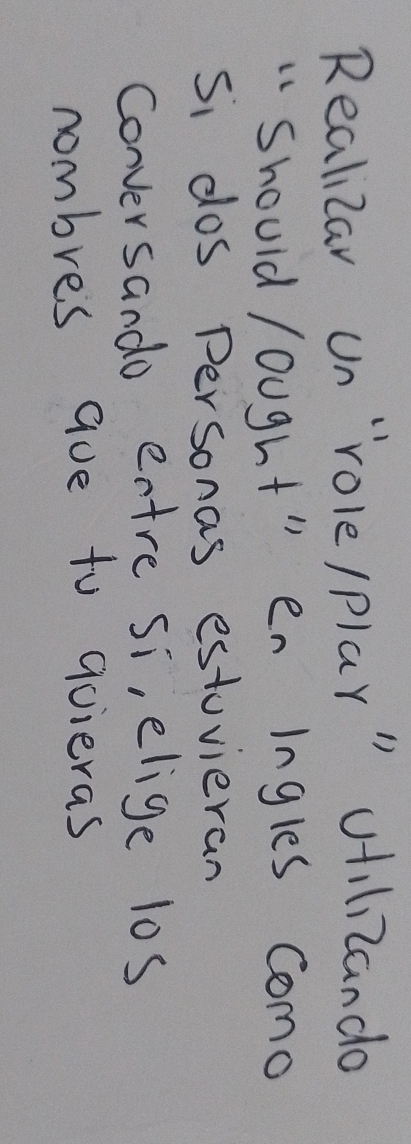 Realizar un "role/Play" utilizando
"Should/ought" en Ingles como
si dos personas estuvieran
conversando entre si, elige los
nombres que tu quieras